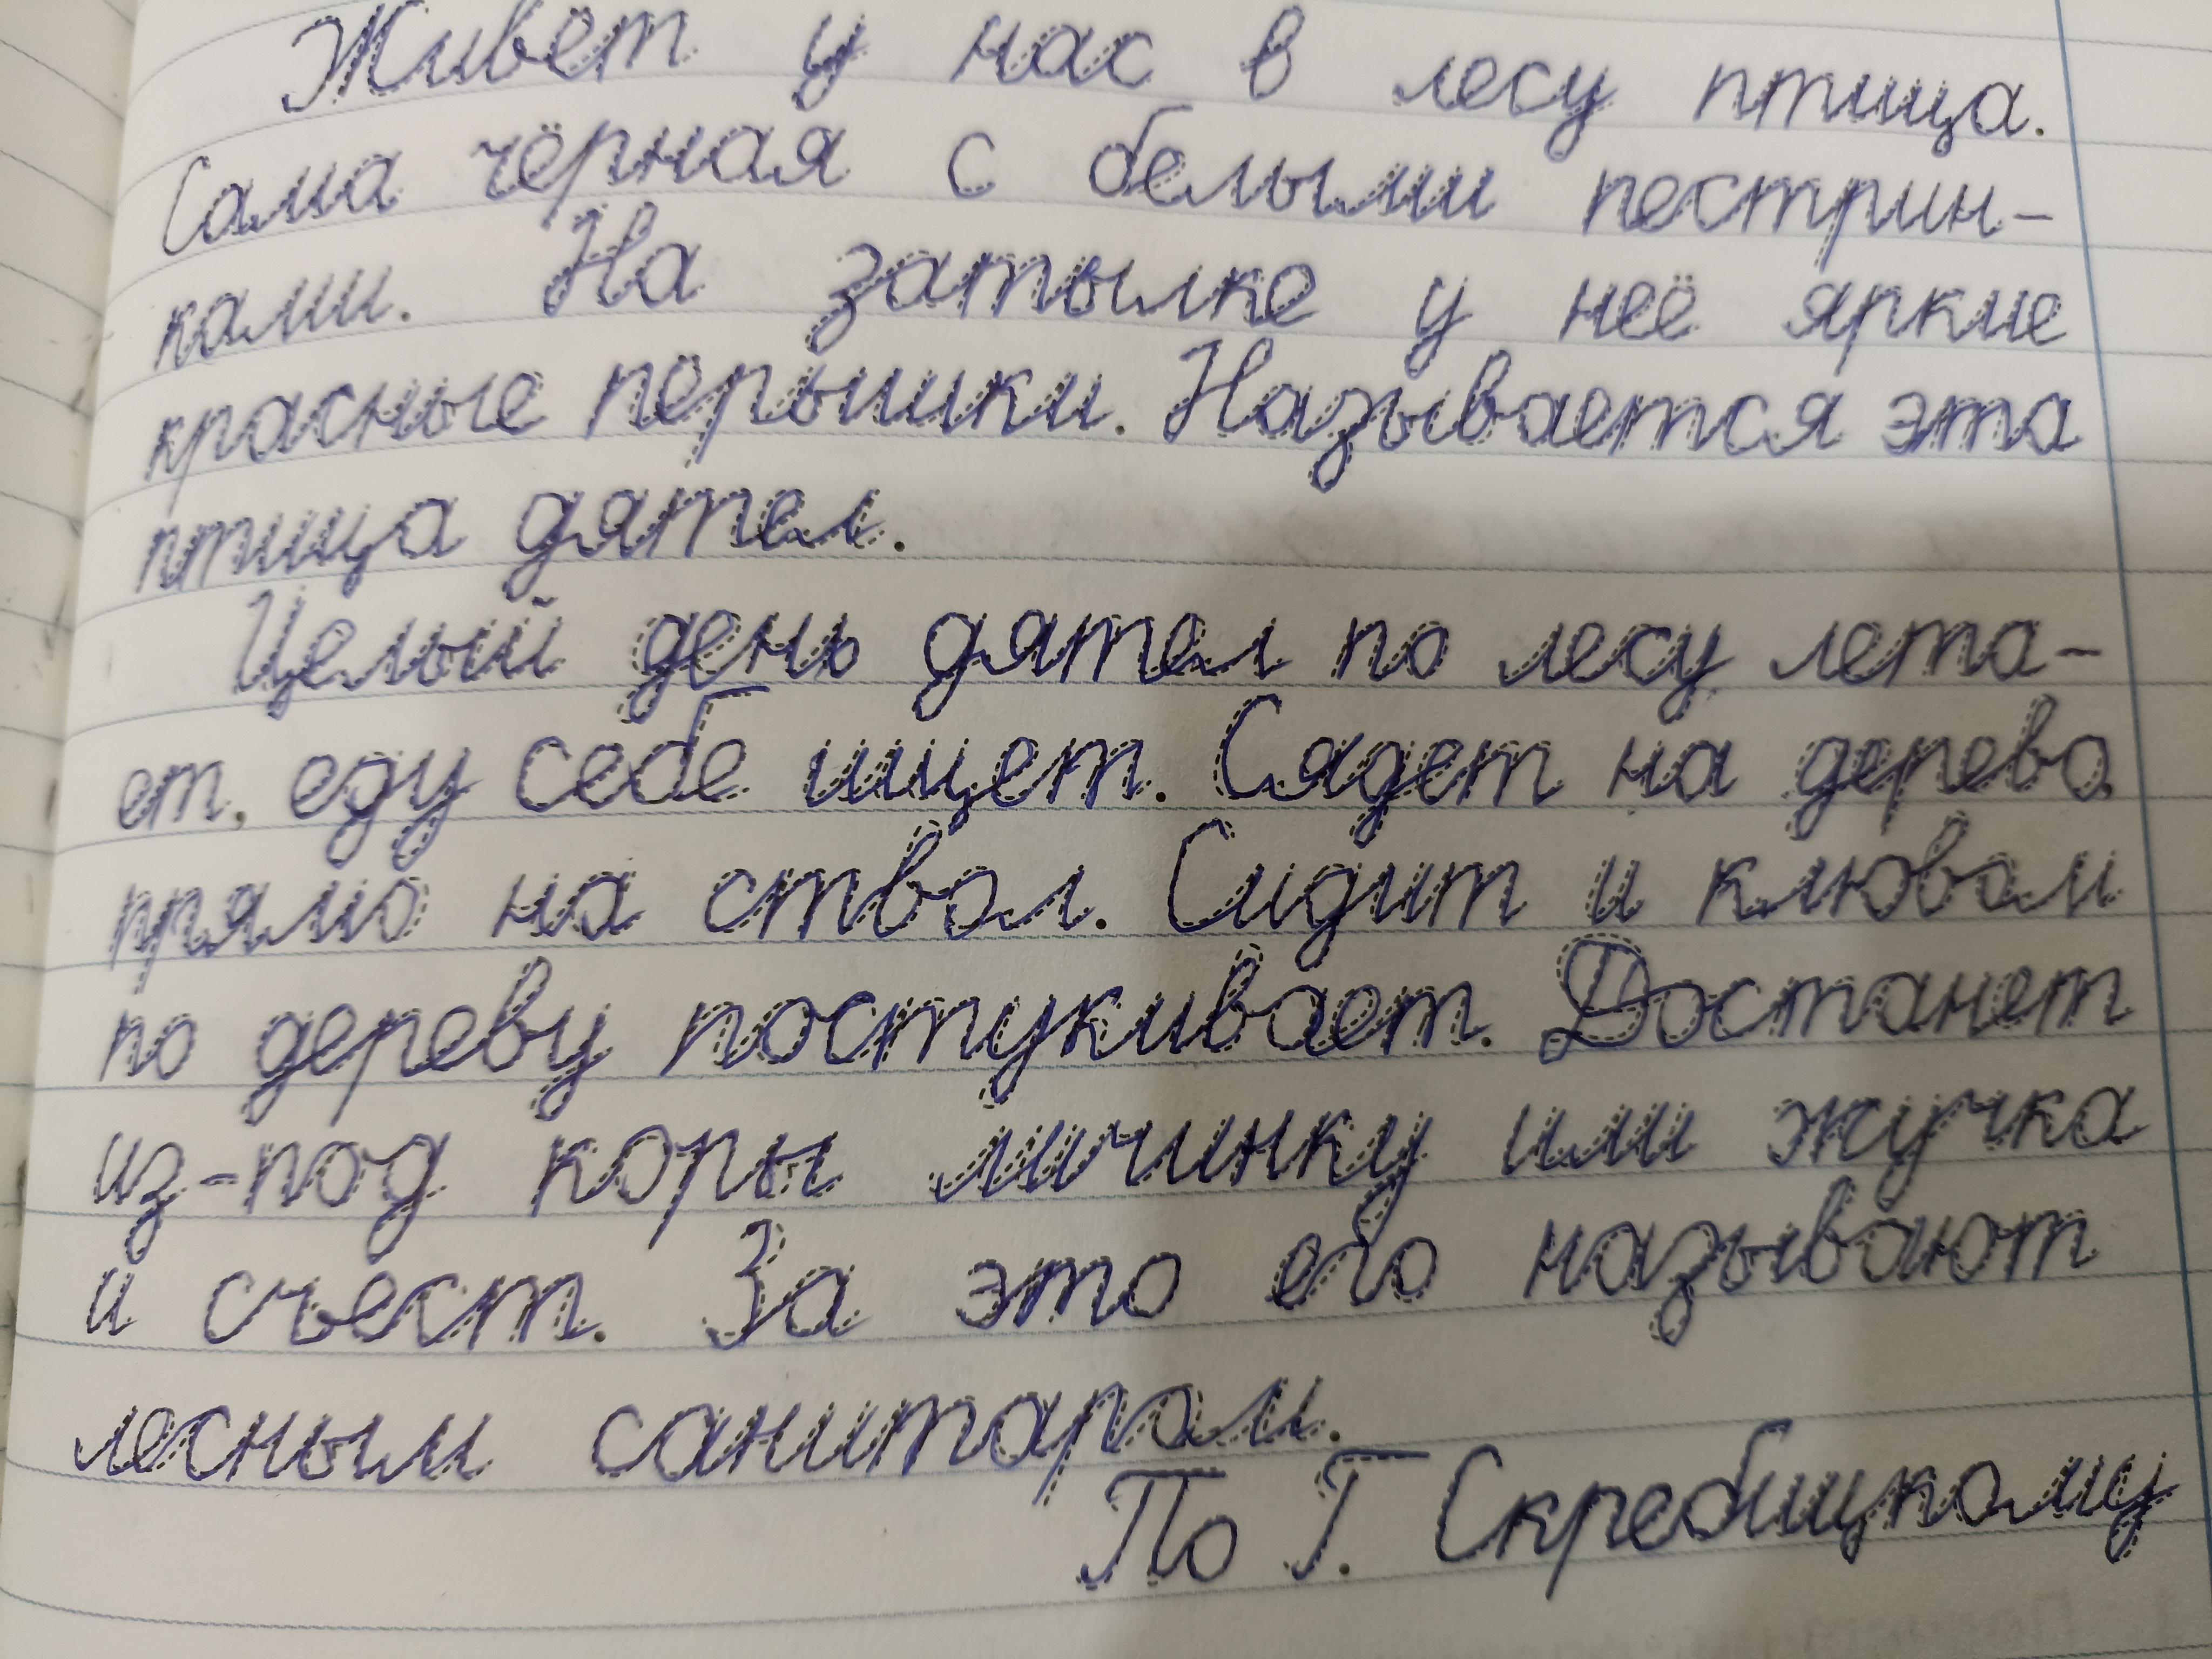 Живёт у нас в лесу птица.
Сама чёрная с белыми пестрин-
ками. На затылке у неё яркие
красные пёрышки. Называется эта
птица дятел.
Целый день дятел по лесу лета-
ет, еду себе ищет. Сядет на дерево
прямо на ствол. Сидит и клювом
по дереву постукивает. Достанет
из-под коры личинку или жучка
и съест. За это его называют
лесным санитаром.
По Г. Скребицкому